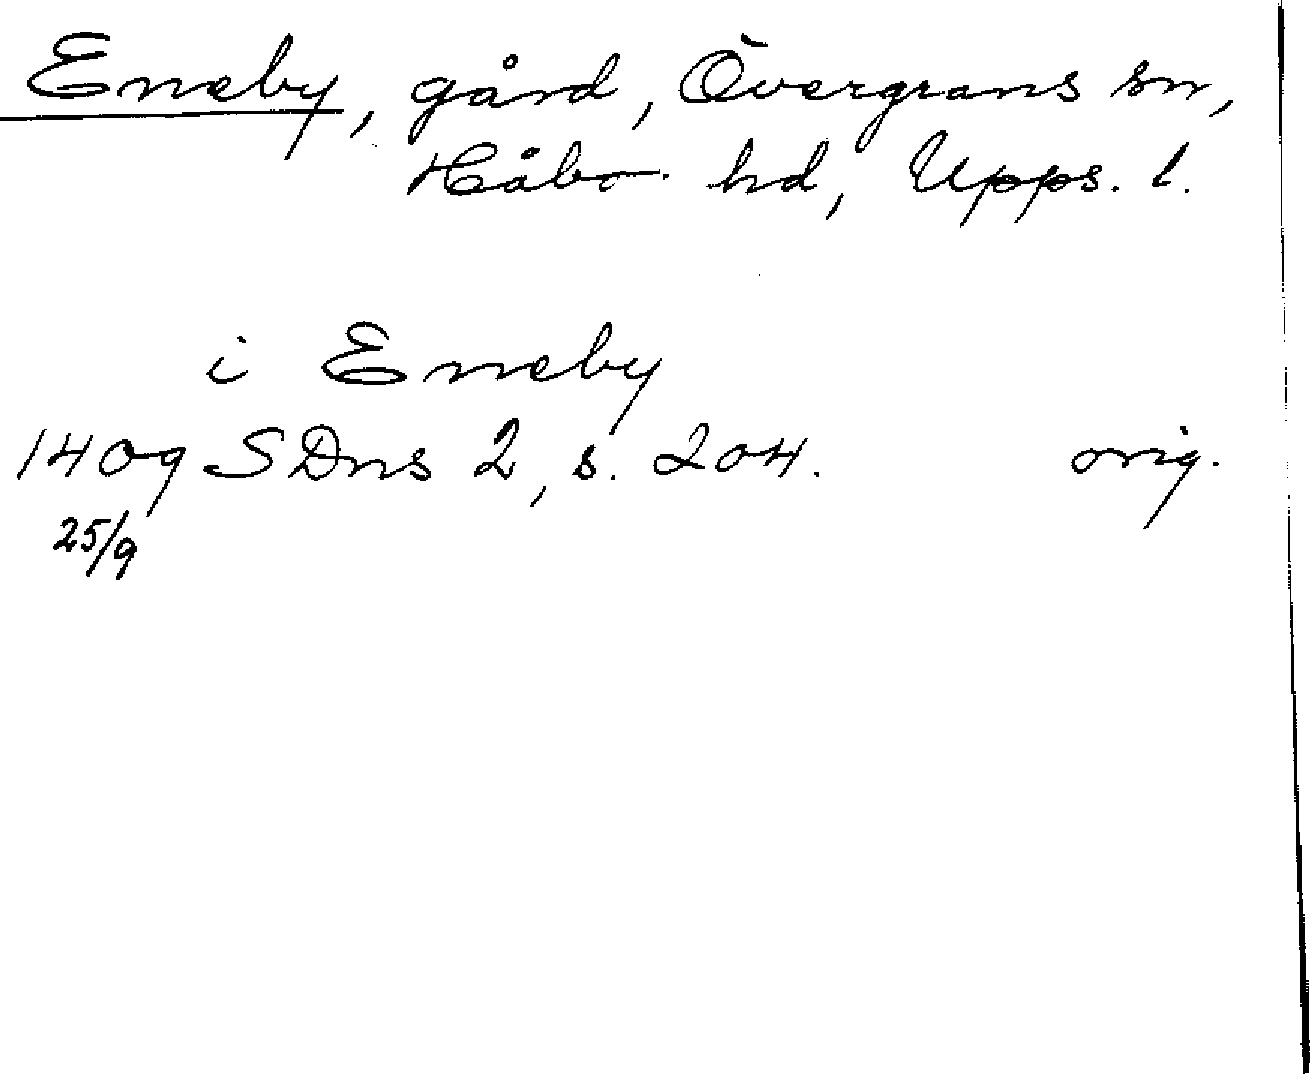 Eneby, gård, Övergrans sn,
Håbo hd, Upps. l.
i Eneby
1409 SDns 2, s. 204. orig.
25/9